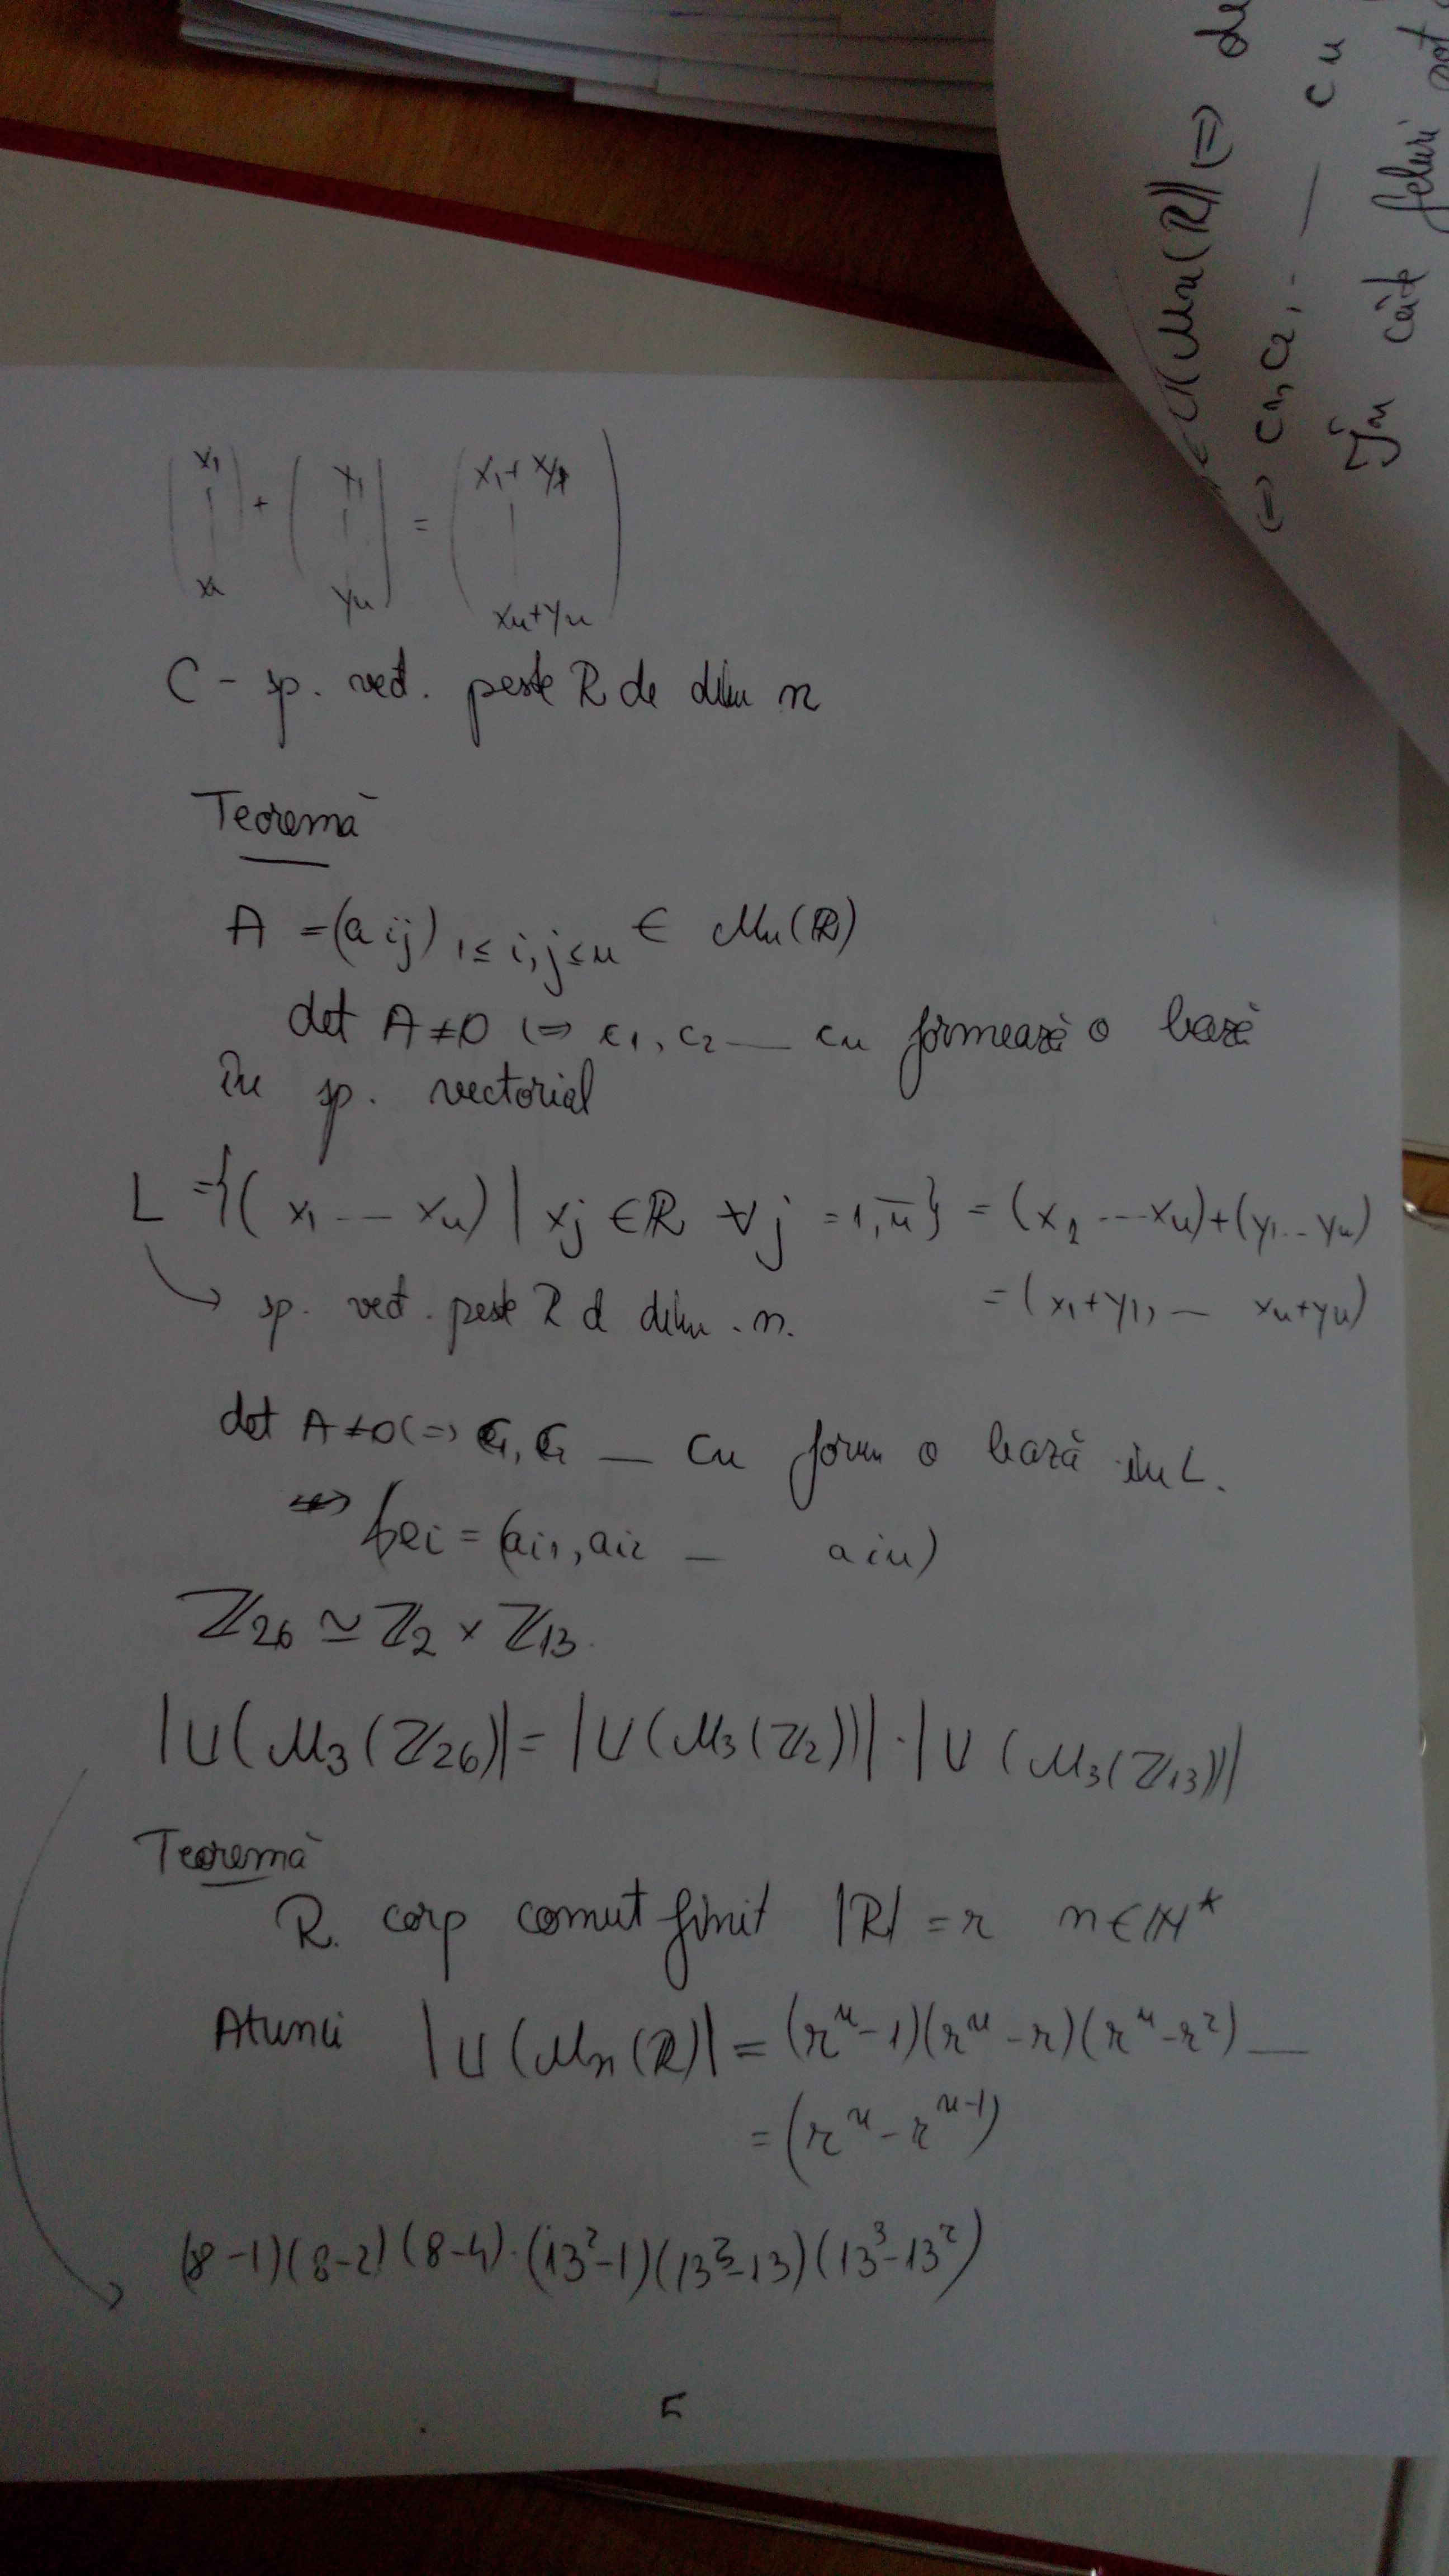 (x1 | xn) + (y1 | yn) = (x1+y1 | xn+yn)
C - sp. vect. peste R de dim n
Teoremă
A = (aij) 1≤i,j≤n ∈ Mn(R)
det A≠0 (=) c1, c2 — cn formează o bază
în sp. vectorial
L = {(x1 -- xn) | xj ∈ R ∀j = 1,n} = (x1 --- xn)+(y1 .. yn)
= (x1+y1, — xn+yn)
sp. vect. peste R d dim. n.
det A≠0 (=) — Cn form o bază în L.
(ai1, ai2 — ain)
Z26 ≃ Z2 × Z13.
|U(M3(Z26)| = |U(M3(Z2))| · |U(M3(Z13))|
Teoremă
R. corp comut finit |R| = r n∈N*
Atunci |U(Mn(R)| = (r^n-1)(r^n-r)(r^n-r^2) —
= (r^n - r^(n-1))
(8-1)(8-2)(8-4)·(13^2-1)(13^3-13)(13^3-13^2)
5
∈ U(Mn(R)) (=) de
(=) c1, c2, - — cn
În câte feluri pot